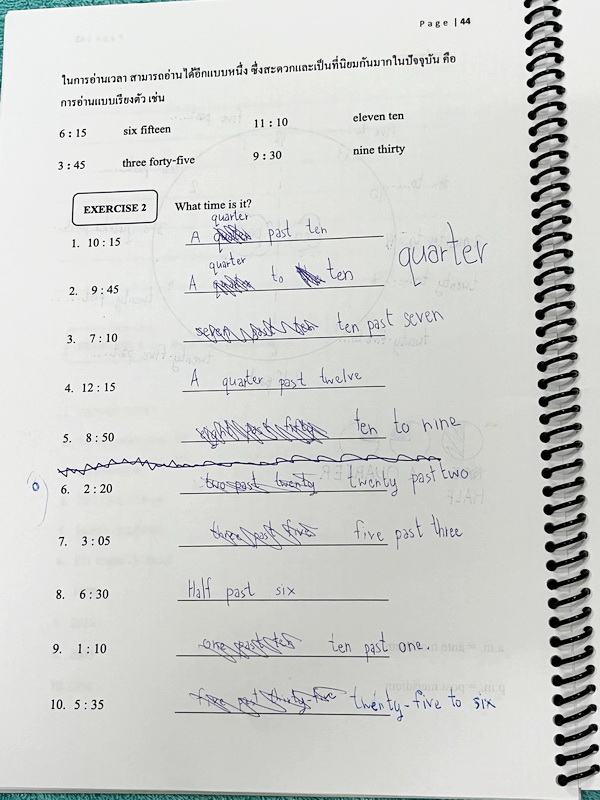 Page | 44
ในการอ่านเวลา สามารถอ่านได้อีกแบบหนึ่ง ซึ่งสะดวกและเป็นที่นิยมกันมากในปัจจุบัน คือ
การอ่านแบบเรียงตัว เช่น
6 : 15 six fifteen 11 : 10 eleven ten
3 : 45 three forty-five 9 : 30 nine thirty
EXERCISE 2 What time is it?
quarter
1. 10 : 15 A past ten
quarter quarter
2. 9 : 45 A to ten
3. 7 : 10 seven past ten ten past seven
4. 12 : 15 A quarter past twelve
5. 8 : 50 eight past fifty ten to nine
6. 2 : 20 two past twenty twenty past two
7. 3 : 05 three past five five past three
8. 6 : 30 Half past six
9. 1 : 10 one past ten ten past one.
10. 5 : 35 five past thirty-five twenty-five to six